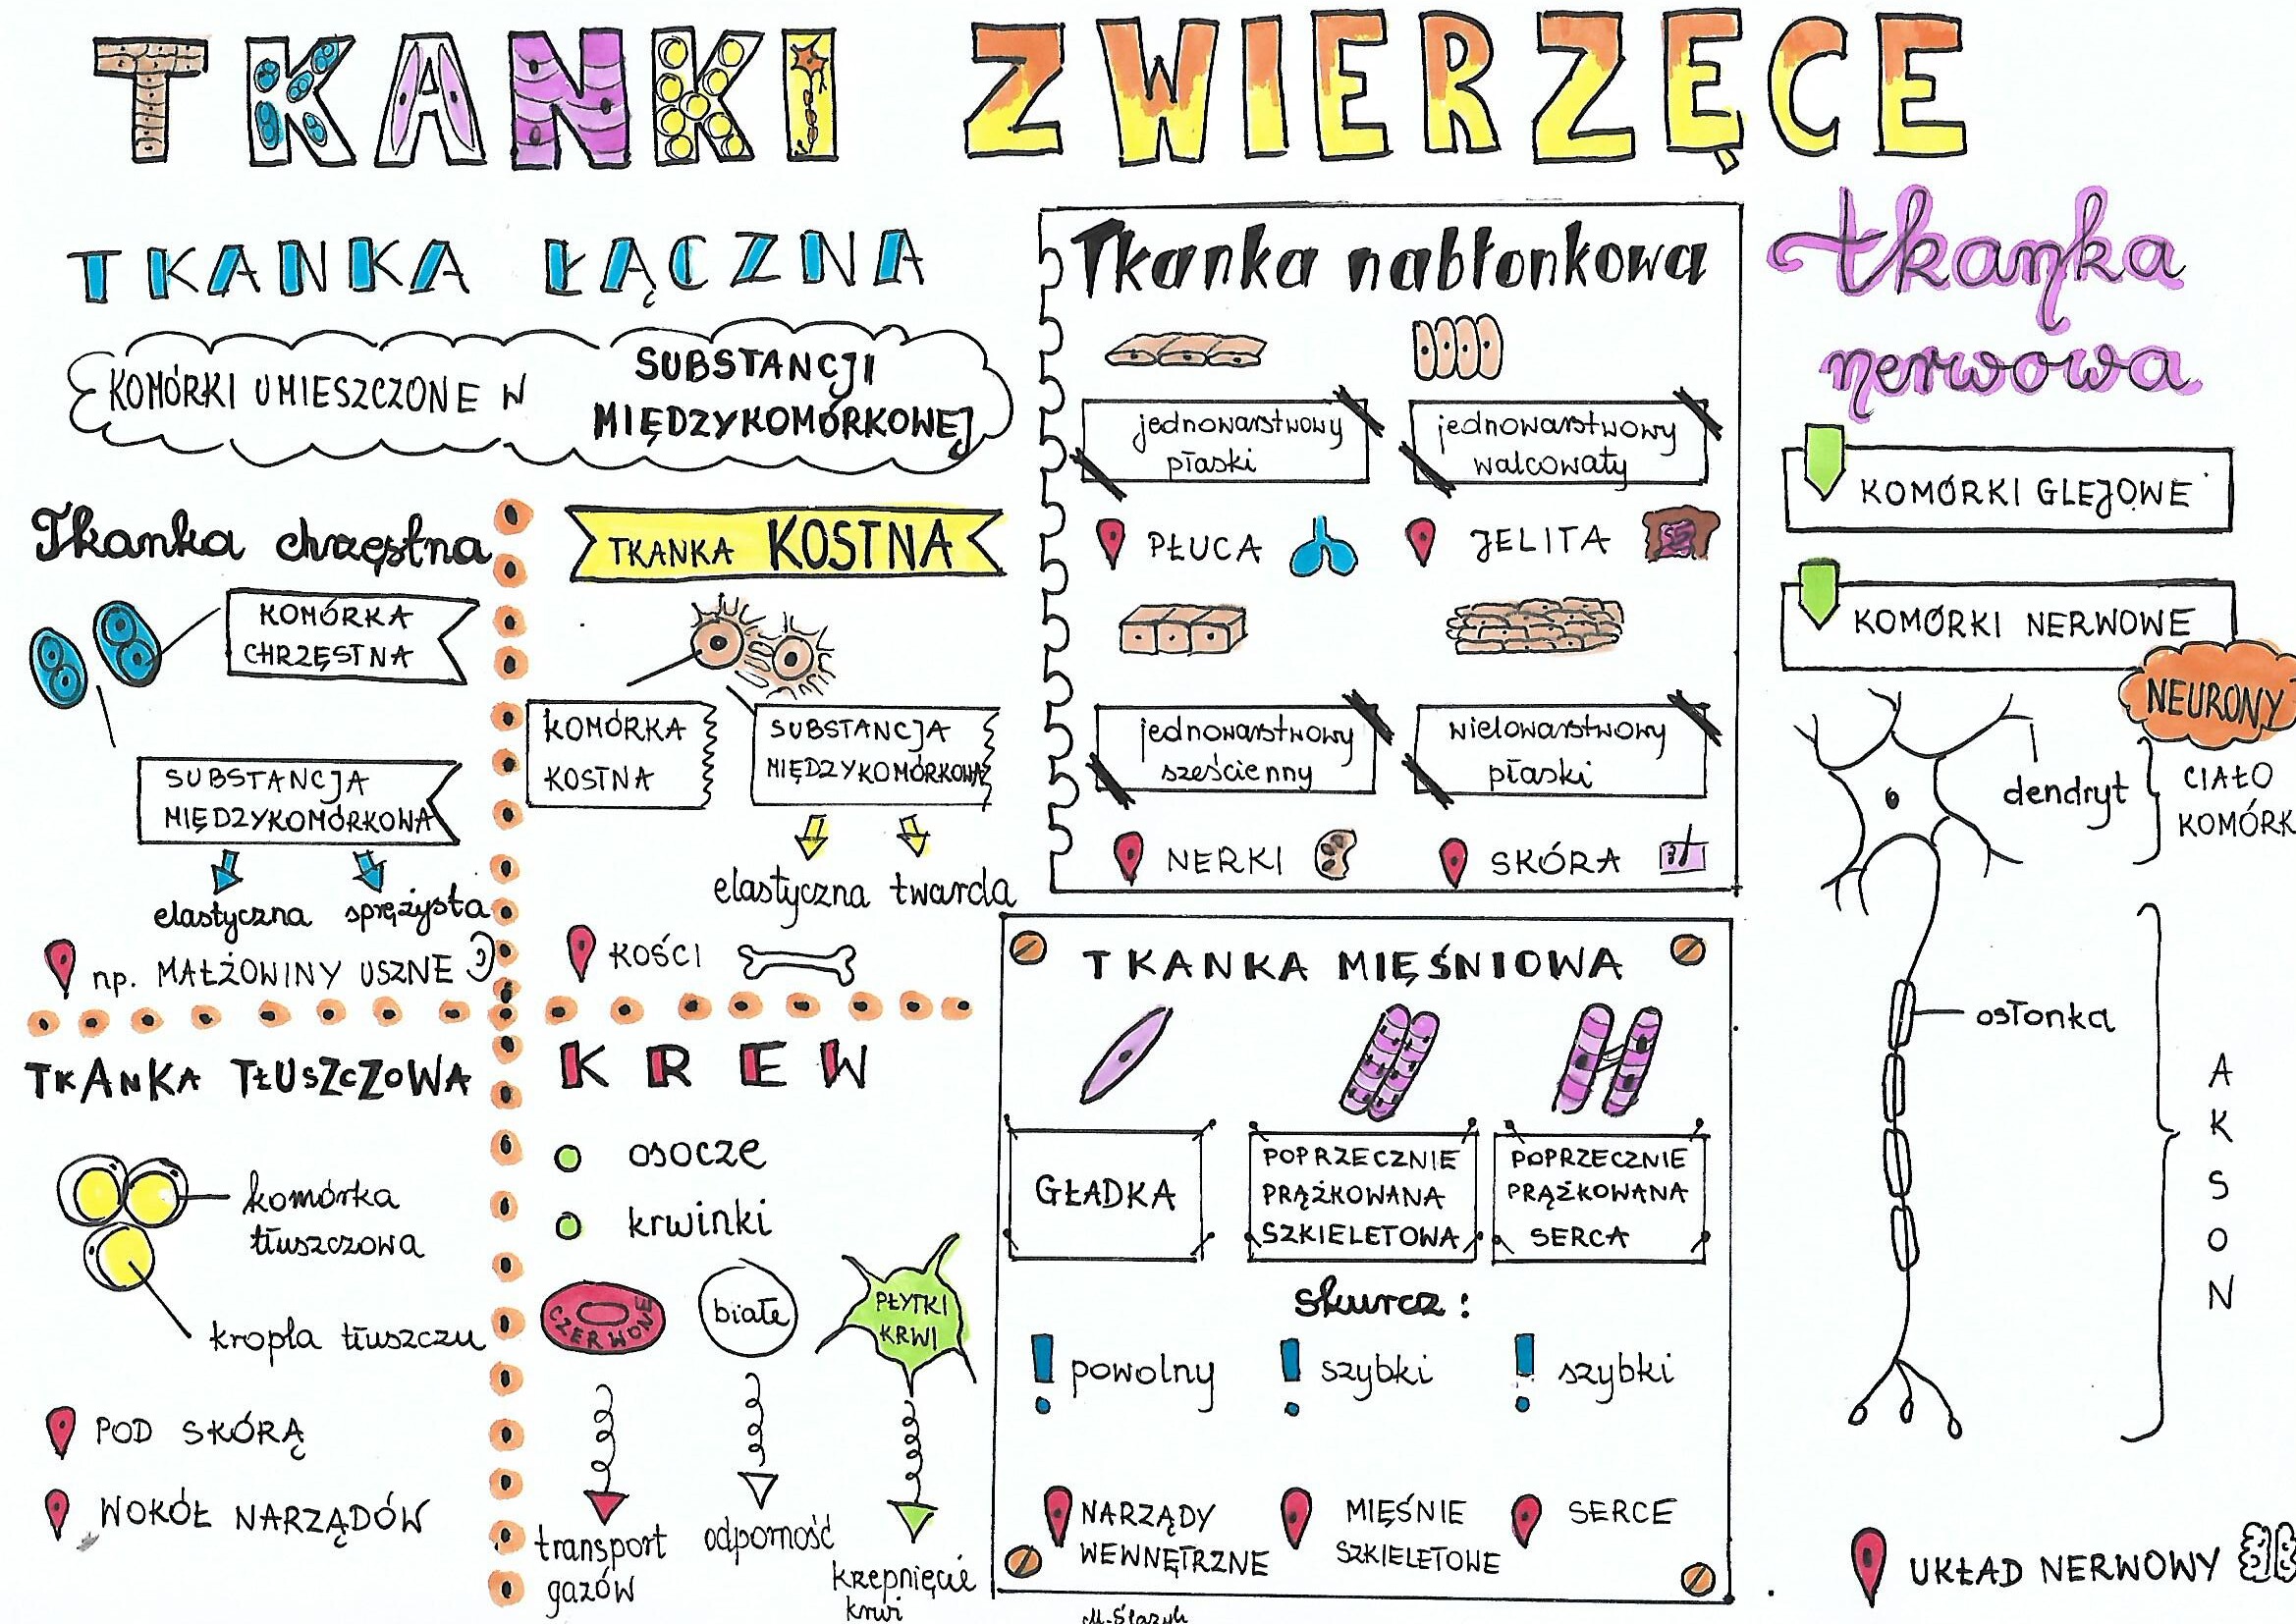 TKANKI ZWIERZĘCE
TKANKA ŁĄCZNA
KOMÓRKI UMIESZCZONE W
SUBSTANCJI
MIĘDZYKOMÓRKOWEJ
Tkanka chrzęstna
KOMÓRKA
CHRZĘSTNA
SUBSTANCJA
MIĘDZYKOMÓRKOWA
elastyczna sprężysta
np. MAŁŻOWINY USZNE
TKANKA KOSTNA
KOMÓRKA
KOSTNA
SUBSTANCJA
MIĘDZYKOMÓRKOWA
elastyczna twarda
KOŚCI
TKANKA TŁUSZCZOWA
komórka
tłuszczowa
kropla tłuszczu
POD SKÓRĄ
WOKÓŁ NARZĄDÓW
KREW
osocze
krwinki
CZERWONE
białe
PŁYTKI
KRWI
transport
gazów
odporność
krzepnięcie
krwi
Tkanka nabłonkowa
jednowarstwowy
płaski
jednowarstwowy
walcowaty
PŁUCA
JELITA
jednowarstwowy
sześcienny
wielowarstwowy
płaski
NERKI
SKÓRA
TKANKA MIĘŚNIOWA
GŁADKA
POPRZECZNIE
PRĄŻKOWANA
SZKIELETOWA
POPRZECZNIE
PRĄŻKOWANA
SERCA
skurcz:
powolny
szybki
szybki
NARZĄDY
WEWNĘTRZNE
MIĘŚNIE
SZKIELETOWE
SERCE
M.Ślazyk
tkanka
nerwowa
KOMÓRKI GLEJOWE
KOMÓRKI NERWOWE
NEURONY
dendryt
CIAŁO
KOMÓRK
osłonka
AKSON
UKŁAD NERWOWY